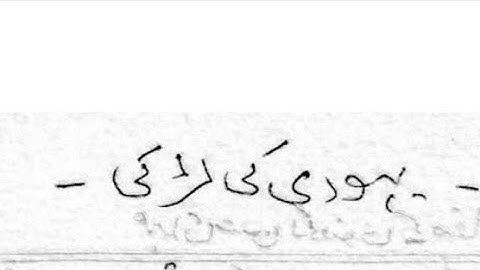 - یہودی کی لڑکی -